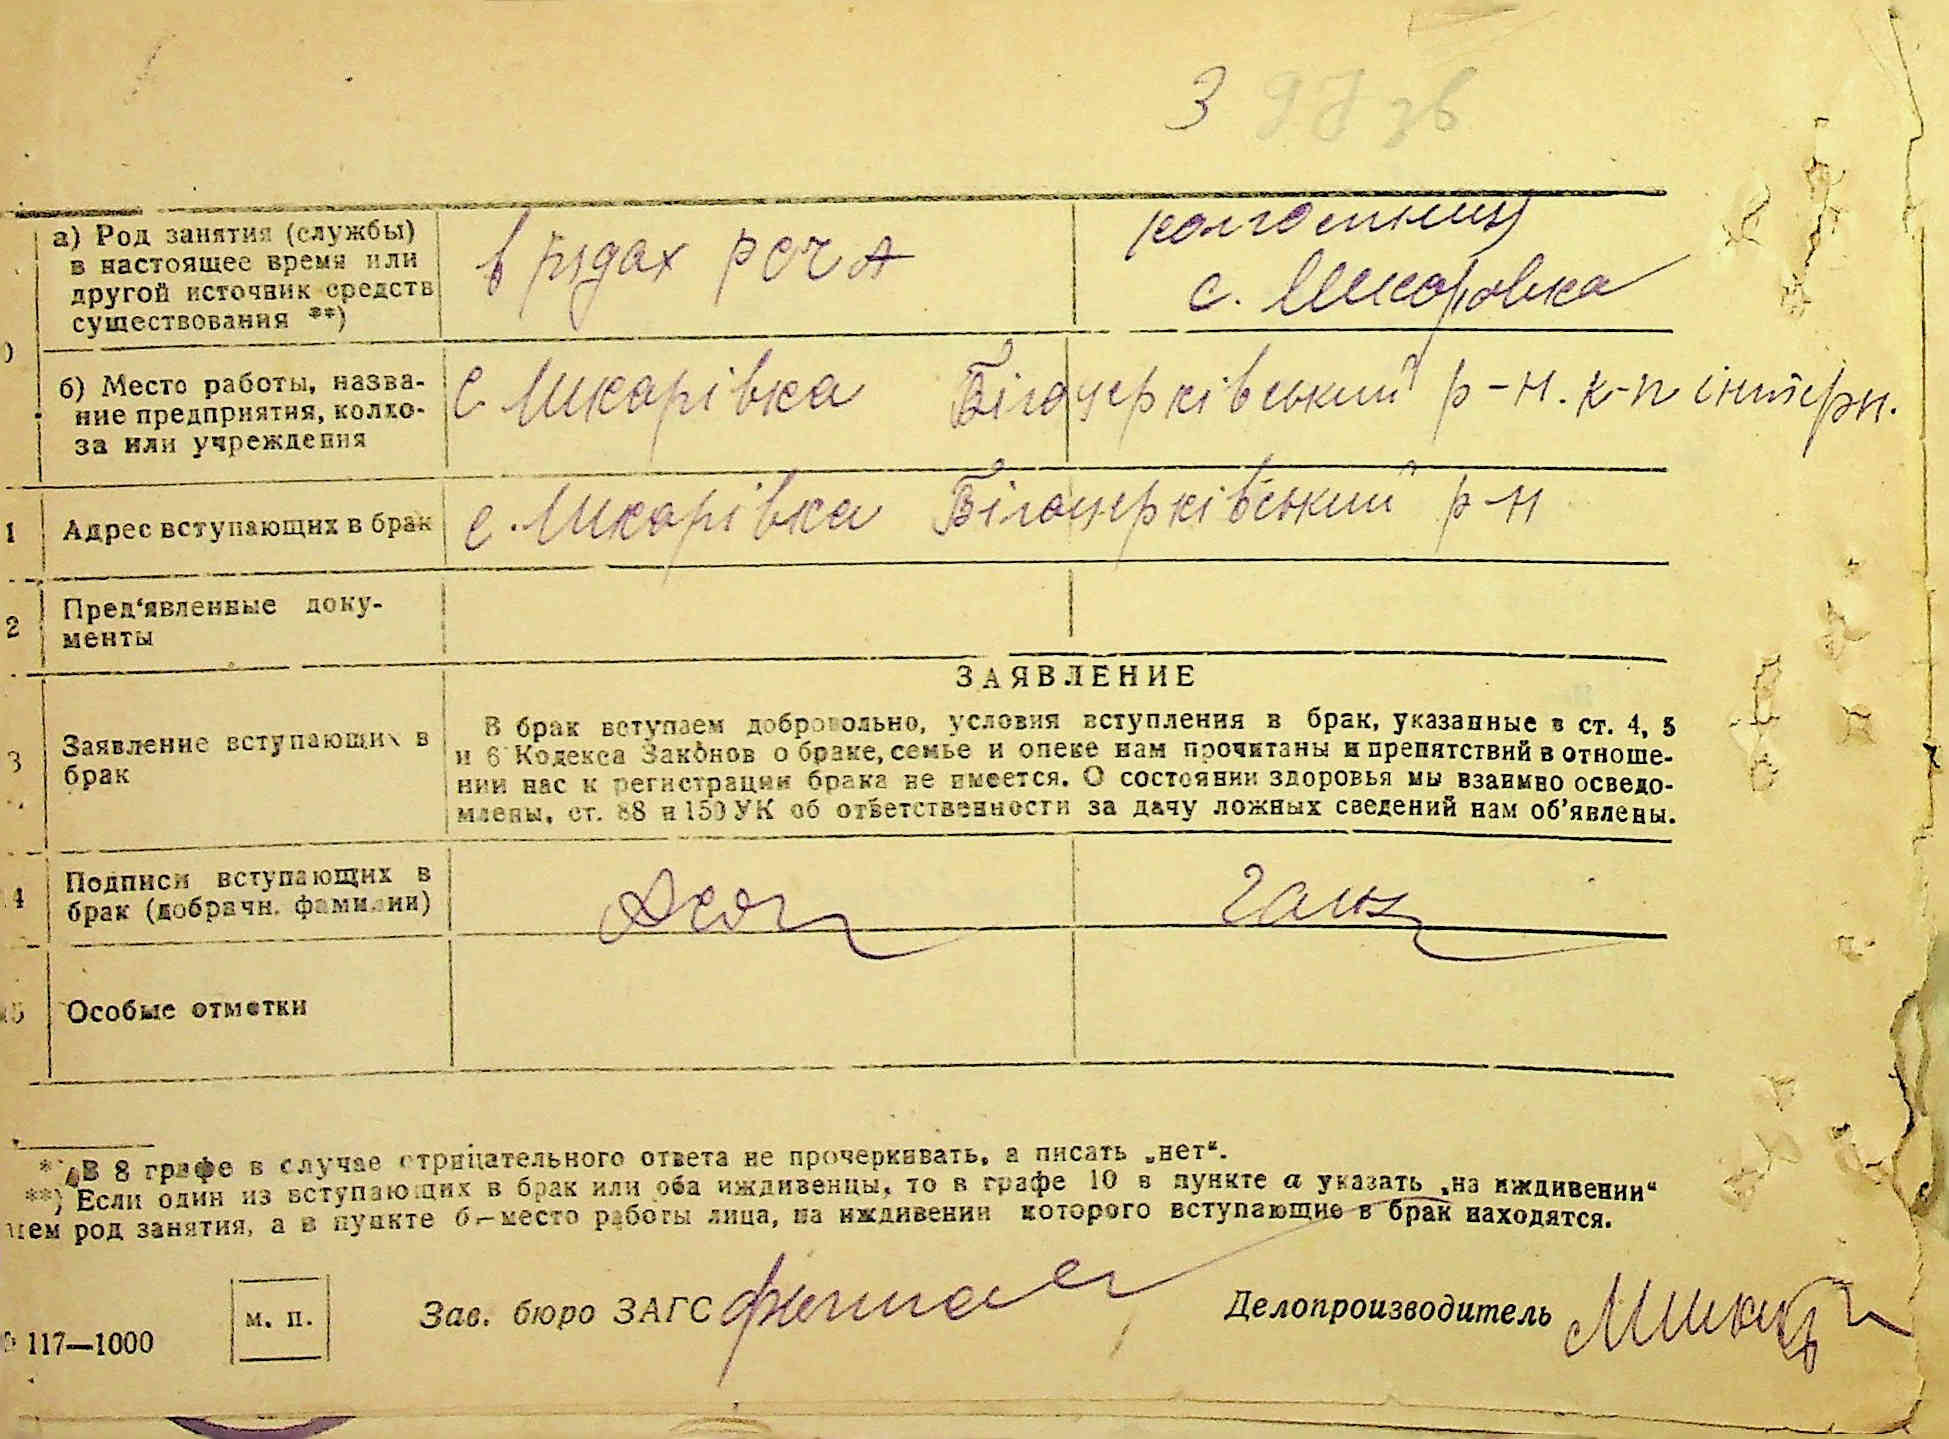 3 97 зв
а) Род занятия (службы)
в настоящее время или
другой источник средств
существования **)
в рядах РСЧА
колгоспниця
с. Шкаровка
б) Место работы, назва-
ние предприятия, колхо-
за или учреждения
с Шкарівка Білоцерківський р-н. к-п інтерн.
1
Адрес вступающих в брак
с. Шкарівка Білоцерківський р-н
2
Пред'явленные доку-
менты
ЗАЯВЛЕНИЕ
3
Заявление вступающих в
брак
В брак вступаем добровольно, условия вступления в брак, указанные в ст. 4, 5
и 6 Кодекса Законов о браке, семье и опеке нам прочитаны и препятствий в отноше-
нии нас к регистрации брака не имеется. О состоянии здоровья мы взаимно осведо-
млены, ст. 88 и 150 УК об ответственности за дачу ложных сведений нам об'явлены.
14
Подписи вступающих в
брак (добрачн. фамилии)
15
Особые отметки
*) В 8 графе в случае отрицательного ответа не прочеркивать, а писать „нет“.
**) Если один из вступающих в брак или оба иждивенцы, то в графе 10 в пункте а указать „на иждивении“
чем род занятия, а в пункте б—место работы лица, на иждивении которого вступающие в брак находятся.
м. п.
Зав. бюро ЗАГС
Делопроизводитель
117—1000